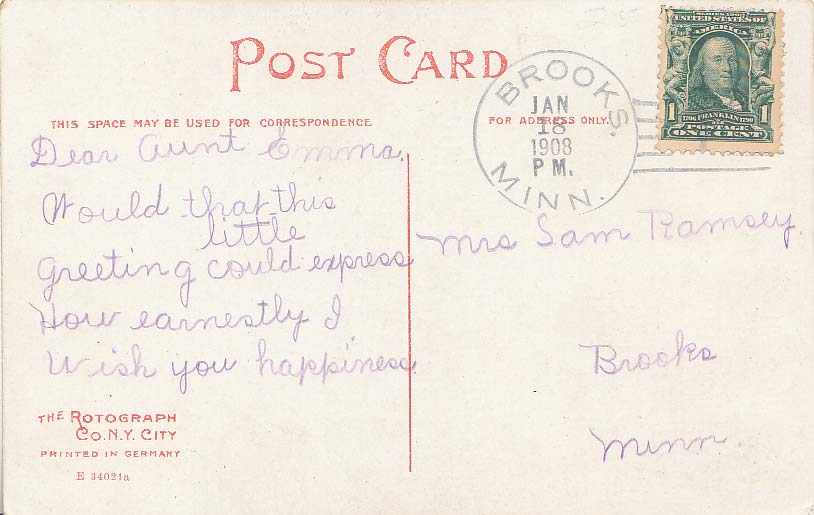 POST CARD
THIS SPACE MAY BE USED FOR CORRESPONDENCE
FOR ADDRESS ONLY.
BROOKS.
JAN
18
1908
PM.
MINN.
SERIES 1902
UNITED STATES OF
AMERICA
1 1
1706 FRANKLIN 1790
POSTAGE
ONE CENT
Dear Aunt Emma.
Would that this
little
Greeting could express
How earnestly I
Wish you happiness
Mrs Sam Ramsey.
Brooks
Minn.
THE ROTOGRAPH
CO. N.Y. CITY
PRINTED IN GERMANY
E 34021a